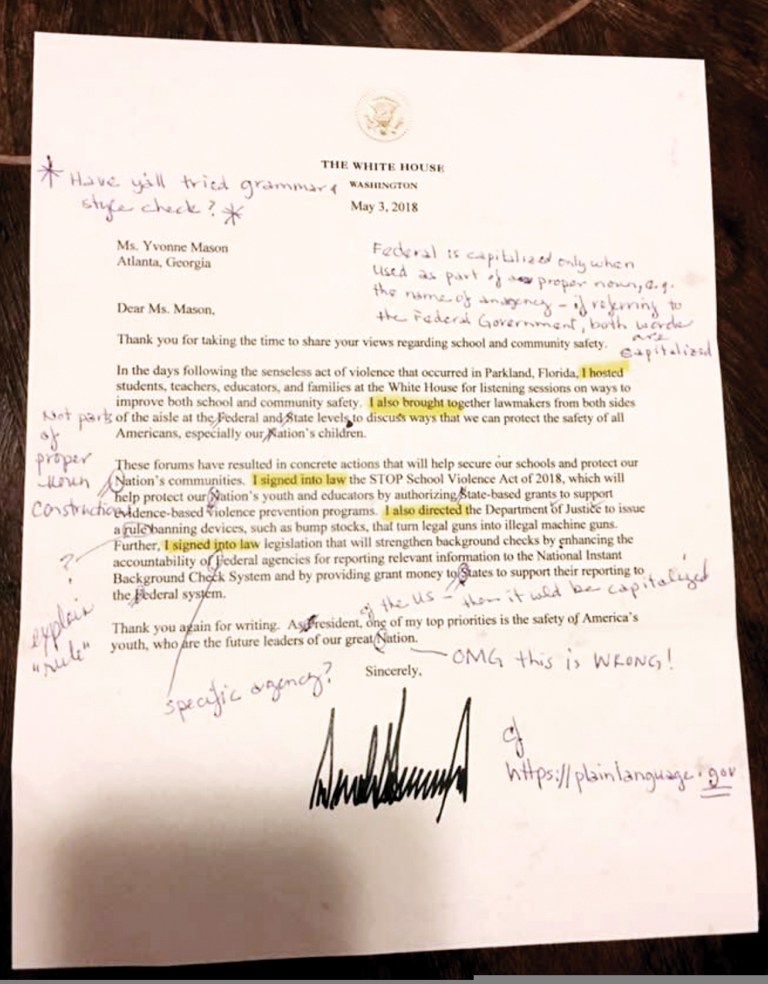 THE WHITE HOUSE
WASHINGTON
May 3, 2018
* Have y'all tried grammar &
style check? *
Ms. Yvonne Mason
Atlanta, Georgia
Federal is capitalized only when
used as part of a proper noun, e.g.
the name of an agency – if referring to
the Federal Government, both words
are
capitalized
Dear Ms. Mason,
Thank you for taking the time to share your views regarding school and community safety.
In the days following the senseless act of violence that occurred in Parkland, Florida, I hosted
students, teachers, educators, and families at the White House for listening sessions on ways to
improve both school and community safety. I also brought together lawmakers from both sides
of the aisle at the Federal and State levels to discuss ways that we can protect the safety of all
Americans, especially our Nation's children.
Not part
of
proper
noun
construction
These forums have resulted in concrete actions that will help secure our schools and protect our
Nation's communities. I signed into law the STOP School Violence Act of 2018, which will
help protect our Nation's youth and educators by authorizing State-based grants to support
evidence-based violence prevention programs. I also directed the Department of Justice to issue
a rule banning devices, such as bump stocks, that turn legal guns into illegal machine guns.
Further, I signed into law legislation that will strengthen background checks by enhancing the
accountability of Federal agencies for reporting relevant information to the National Instant
Background Check System and by providing grant money to States to support their reporting to
the Federal system.
?
explain
"rule"
of the US – then it wld be capitalized
Thank you again for writing. As President, one of my top priorities is the safety of America's
youth, who are the future leaders of our great Nation.
OMG this is WRONG!
Sincerely,
specific agency?
cf
https://plainlanguage.gov